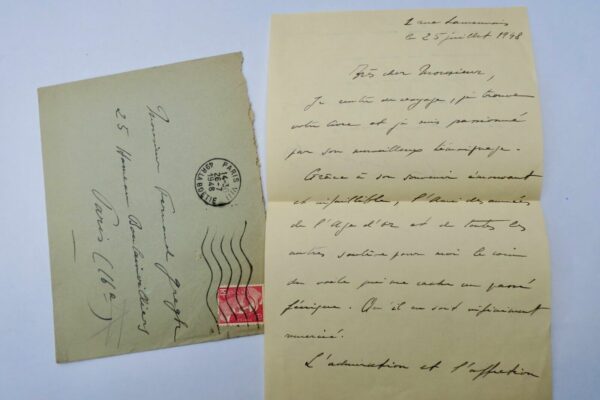 Monsieur Fernand Gregh
25 Hameau Boulainvilliers
Paris (16e)
PARIS VIII
26-7
1948
R. LA BOETIE
2 rue Lamennais
le 25 juillet 1948
Très cher Monsieur,
Je rentre de voyage, je trouve
votre livre et je suis passionné
par son merveilleux témoignage.
Grâce à son souvenir émouvant
et infaillible, l'Ami des années
de l'Age d'or et de toutes les
autres soulève pour moi le coin
du voile qui me cache un passé
féerique. Qu'il en soit infiniment
remercié.
L'admiration et l'affection